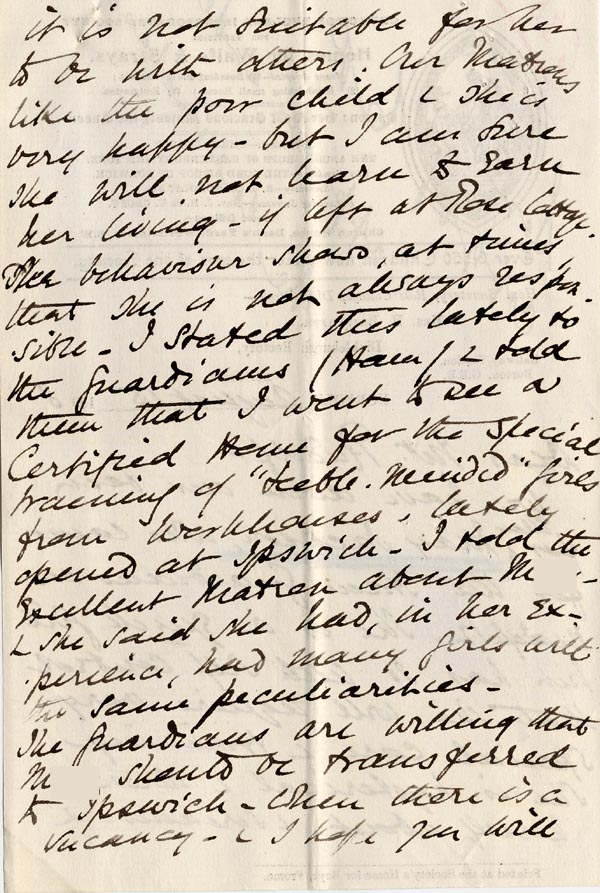 it is not suitable for her
to be with others. Our Matrons
like the poor child & she is
very happy - but I am sure
she will not learn to earn
her living - if left at Rose Cottage.
Her behaviour shows, at times,
that she is not always respon-
sible - I stated this lately to
the Guardians (Ham) & told
them that I went to see a
Certified Home for the special
training of "feeble-minded" girls
from workhouses, lately
opened at Ipswich - I told the
Excellent Matron about M -
& she said she had, in her ex-
perience, had many girls with
the same peculiarities -
The Guardians are willing that
M should be transferred
to Ipswich - when there is a
vacancy - & I hope you will